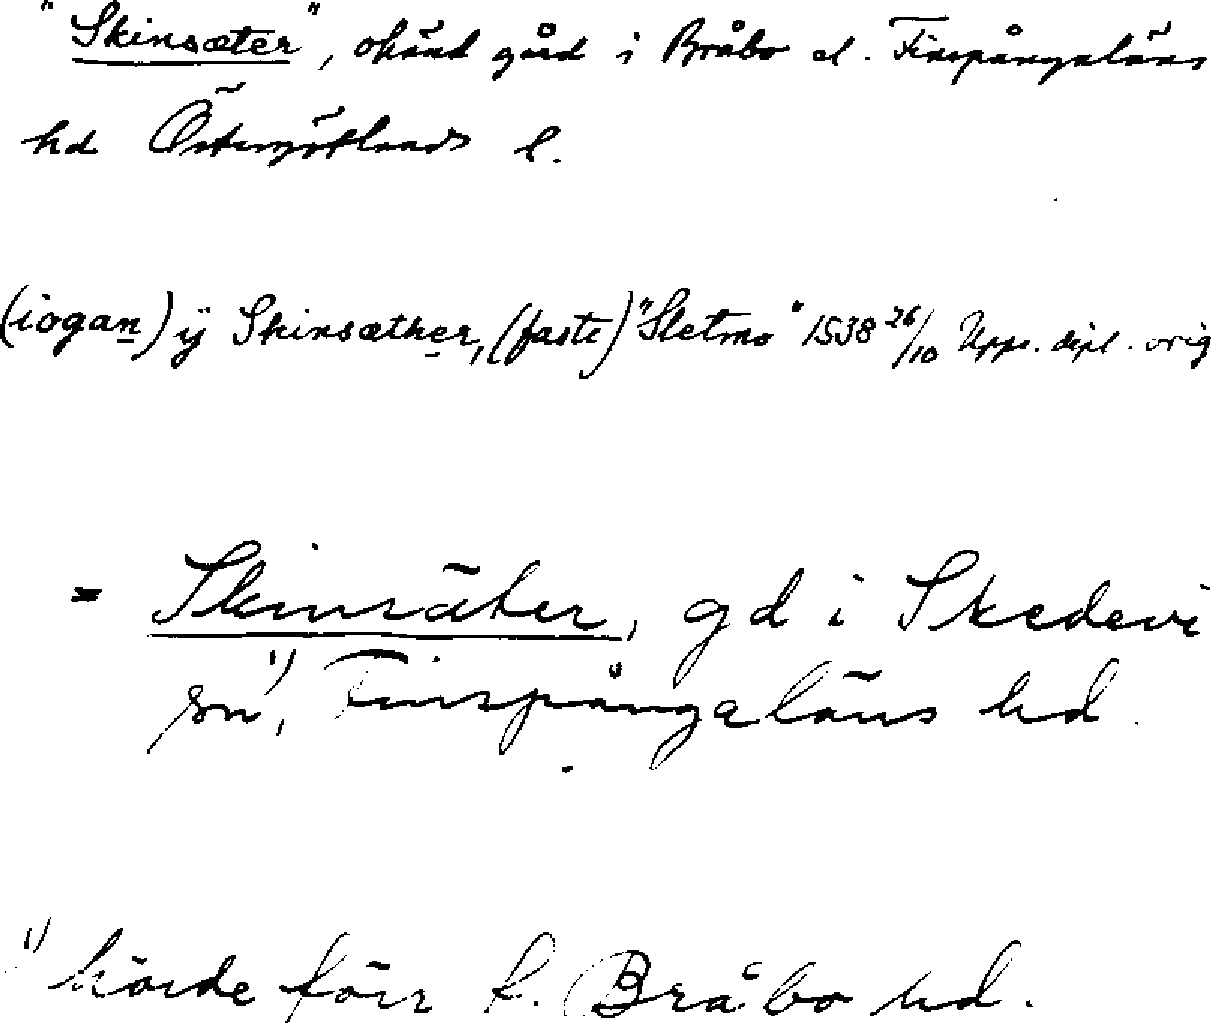 "Skinsæter", okänd gård i Bråbo el. Finspångaläns
hd Östergötlands l.
(iogan) ÿ Skinsæther, (faste) "Sletmo" 1538 26/10 Upps. dipl. orig
= Skinsäter, gd i Skedevi
sn 1), Finspångaläns hd.
1) hörde förr t. Bråbo hd.